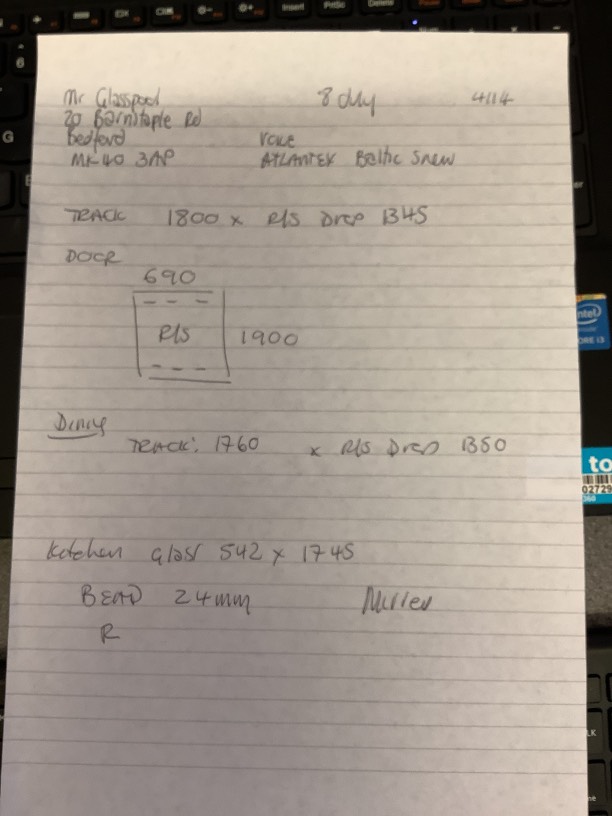 Mr Glasspool 8 July 4114
20 Barnstaple Rd
Bedford Voile
MK40 3AP ATLANTEX Baltic Snow
TRACK 1800 x R/S Drop 1345
DOOR
690
R/S 1900
Dining
TRACK: 1760 x R/S Drop 1350
Kitchen Glass 542 x 1745
BEAD 24mm
R
Insert PrtSc Delete
6
G
intel
CORE i3
to
02729
LK